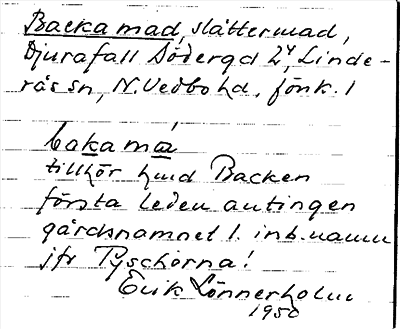 Backamad, slåttermad,
Djurafall Södergd 2⁴, Linde-
rås sn, N. Vedbo hd, Jönk. l
bakamá
tillhör hmd Backen
första leden antingen
gårdsnamnet l. inb.namn
jfr Pyschorna!
Erik Lönnerholm
1950